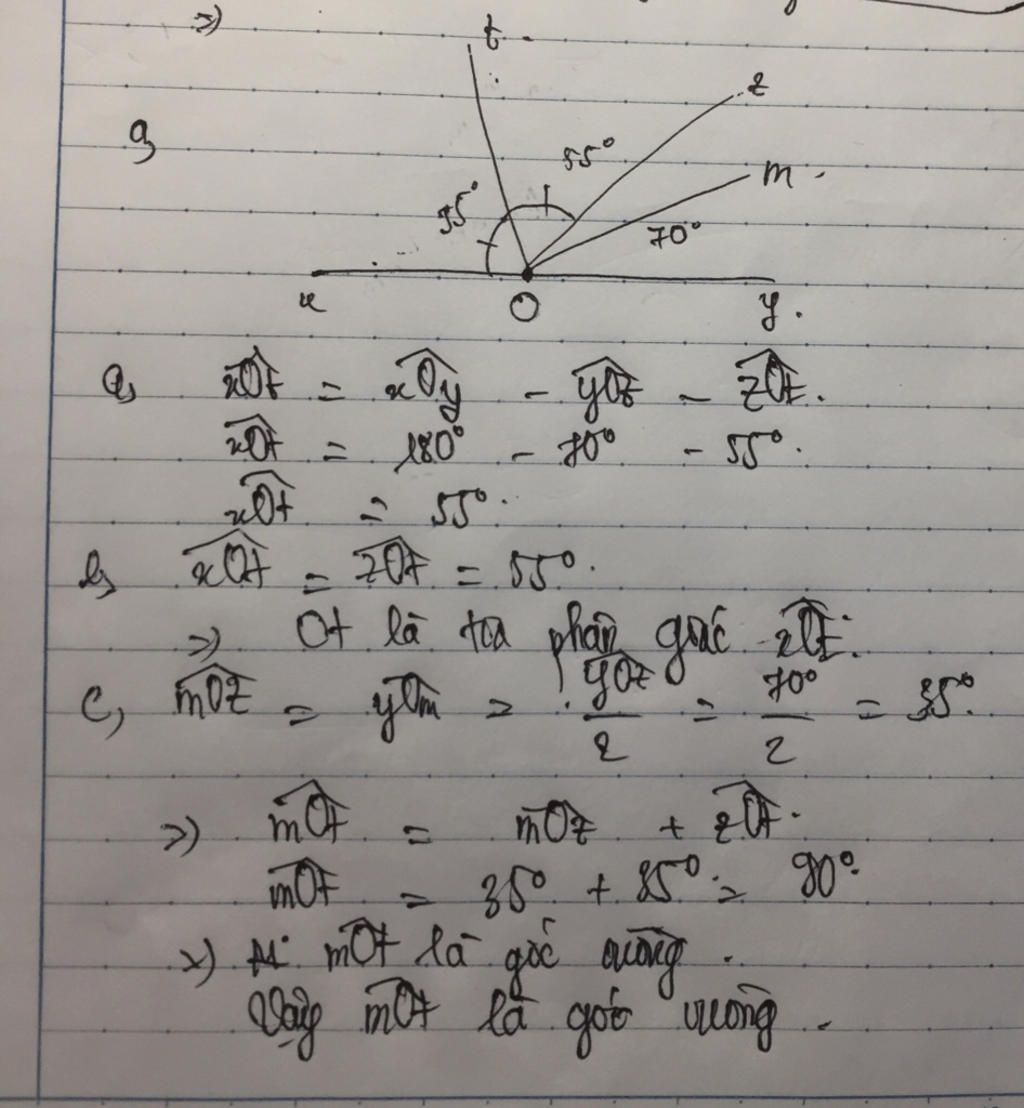 =>)
t
z
a,
55°
m
55°
70°
x O y
a, xOt = xOy - yOz - zOt.
xOt = 180° - 70° - 55°.
xOt = 55°.
b, xOt = zOt = 55°.
=>) Ot là tia phân giác xOz.
c, mOz = yOm = yOz/2 = 70°/2 = 35°.
=>) mOt = mOz + zOt.
mOt = 35° + 55° = 90°.
=>) mOt là góc vuông.
Vậy mOt là góc vuông.